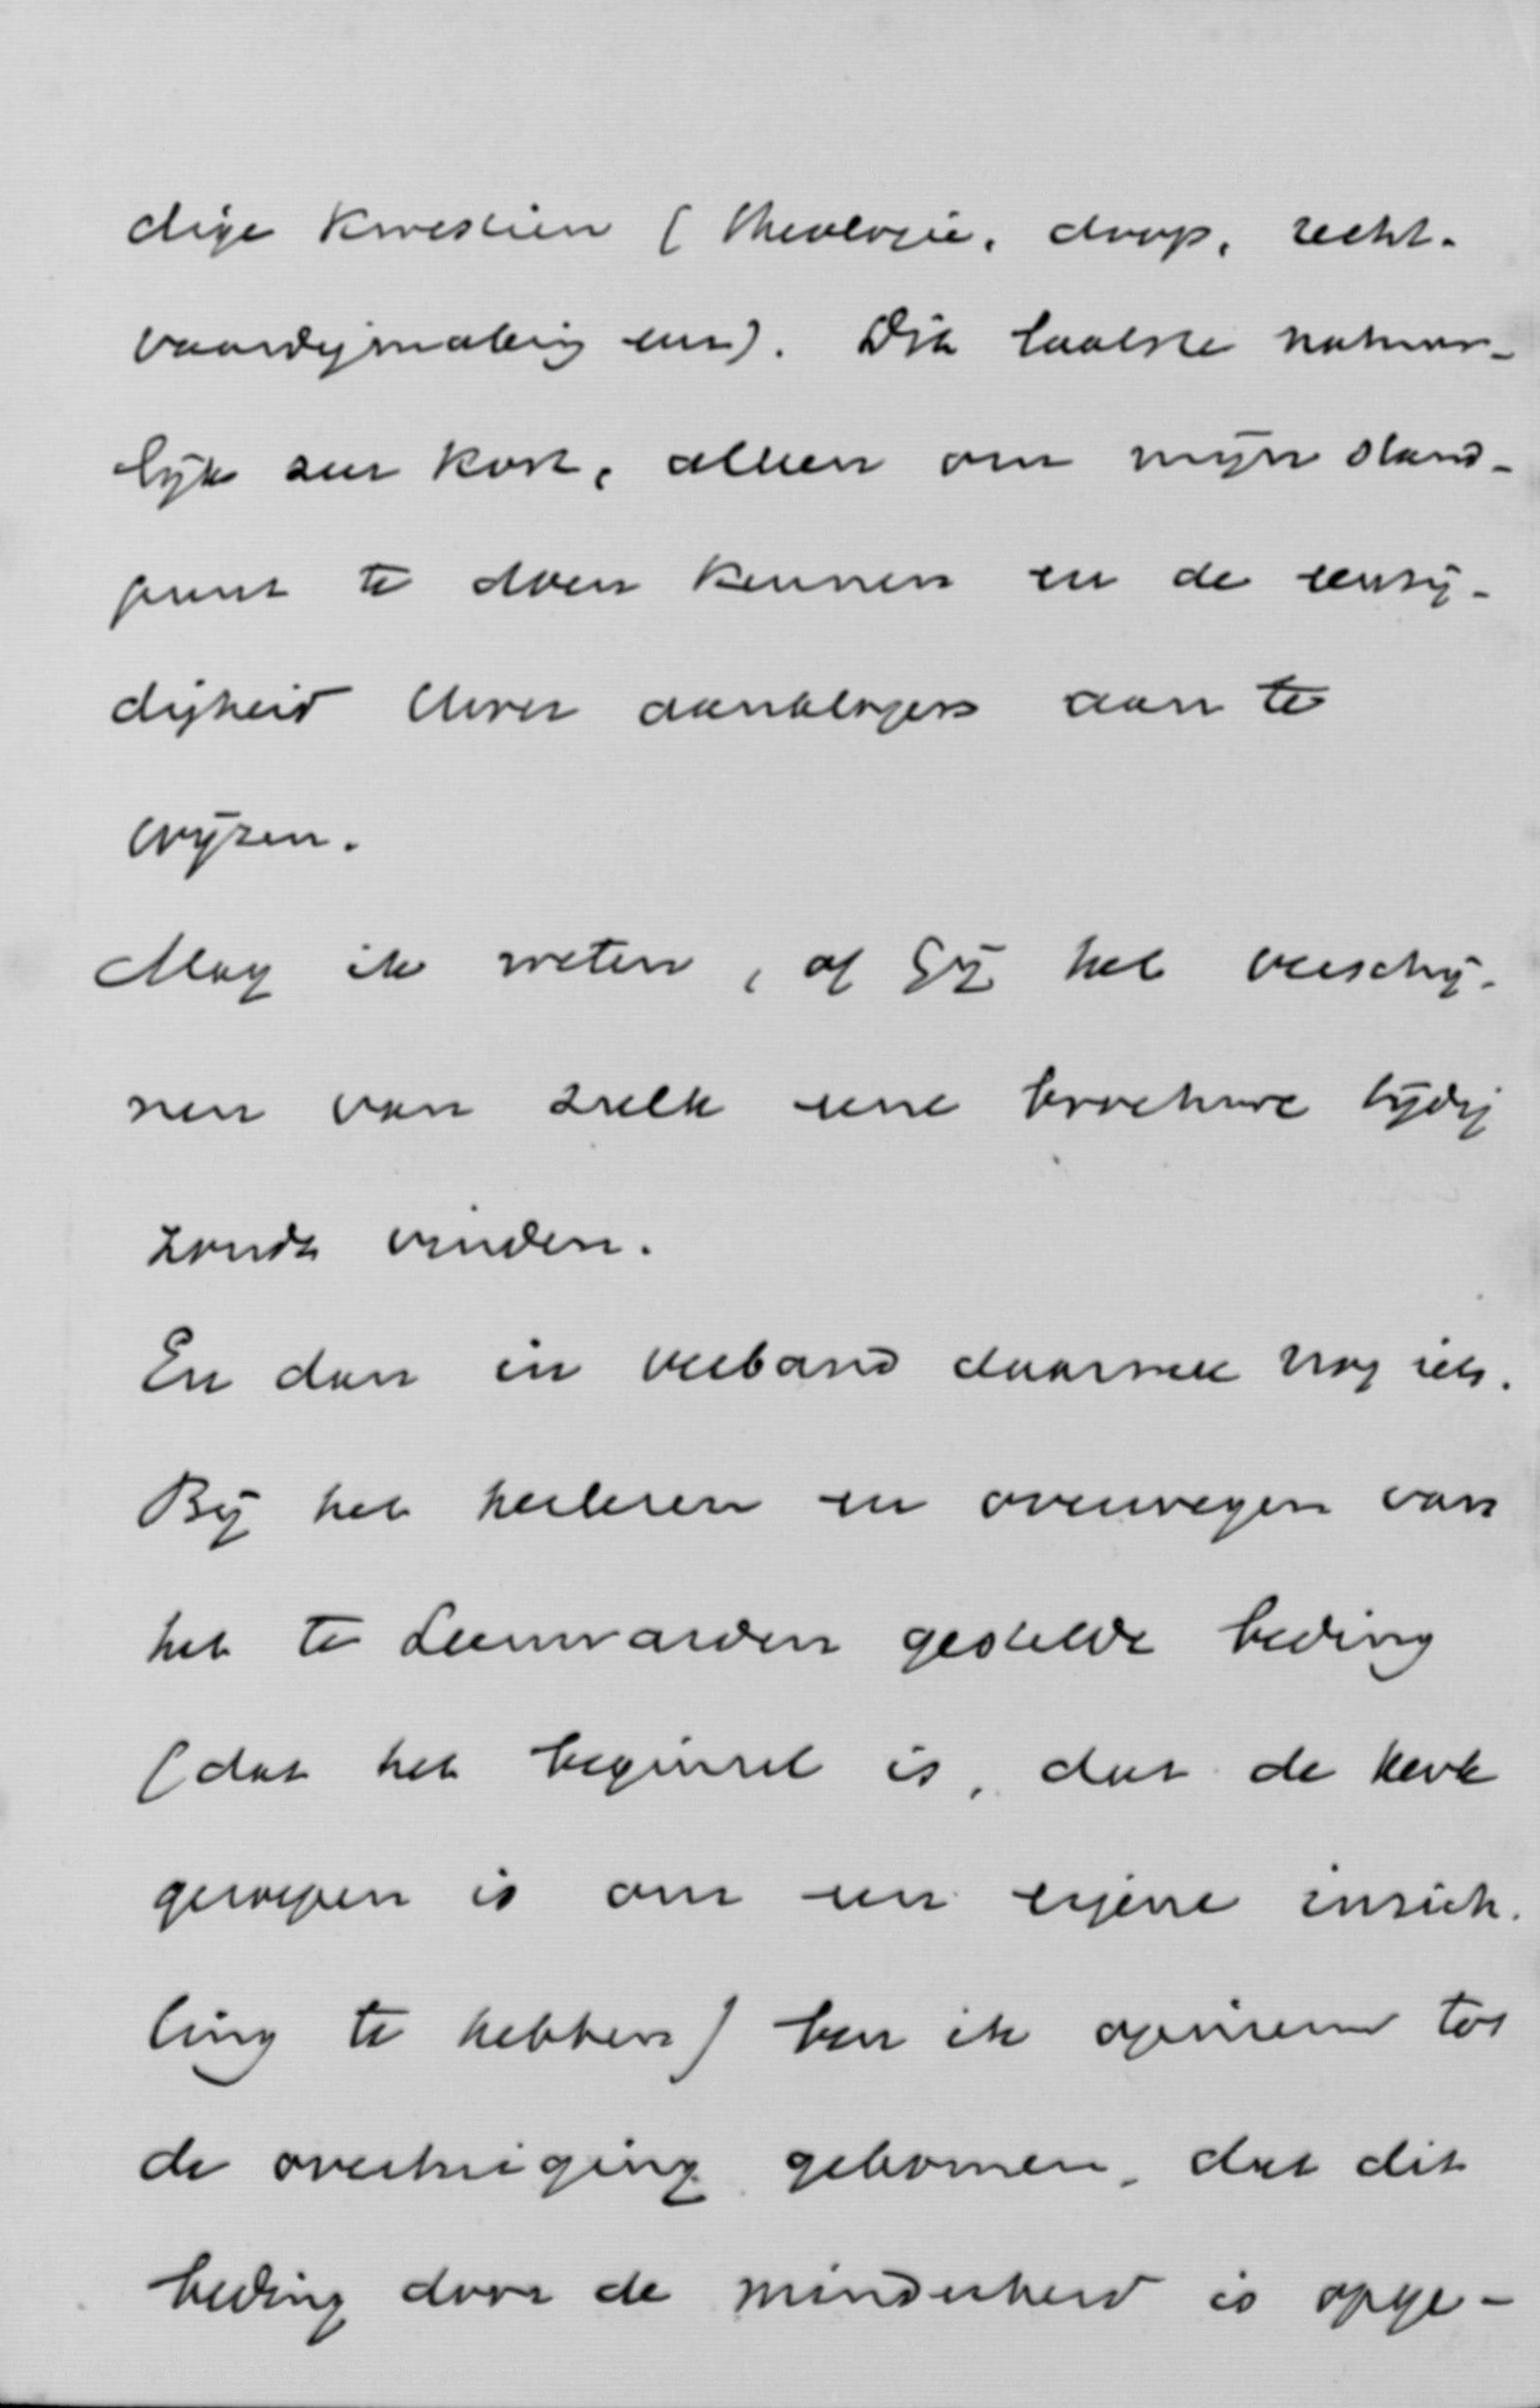 dige kwestiën (theologie, doop, recht-
vaardigmaking enz). Dit laatste natuur-
lijk zeer kort, alleen om mijn stand-
punt te doen kennen en de eenzij-
digheid Uwer aanklagers aan te
wijzen.
Mag ik weten, of Gij het verschij-
nen van zulk eene brochure tijdig
zoudt vinden.
En dan in verband daarmee nog iets.
Bij het herlezen en overwegen van
het te Leeuwarden gestelde beding
(dat het beginsel is, dat de kerk
geroepen is om een eigene inrich-
ting te hebben) ben ik opnieuw tot
de overtuiging gekomen, dat dit
beding door de minderheid is opge-